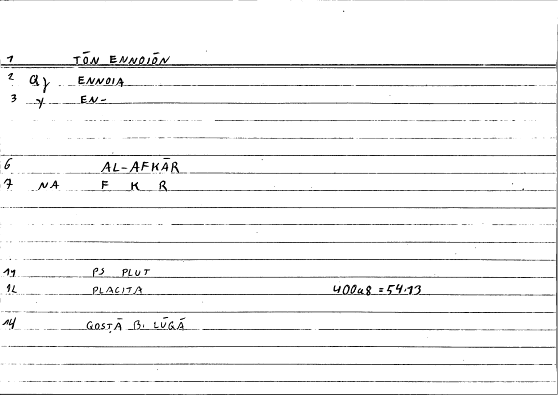 1 TŌN ENNOIŌN
2 Qy ENNOIA
3 y EN-
6 AL-AFKĀR
7 NA F K R
11 PS PLUT
12 PLACITA 400a8 = 54.13
14 QOSṬĀ B. LŪQĀ